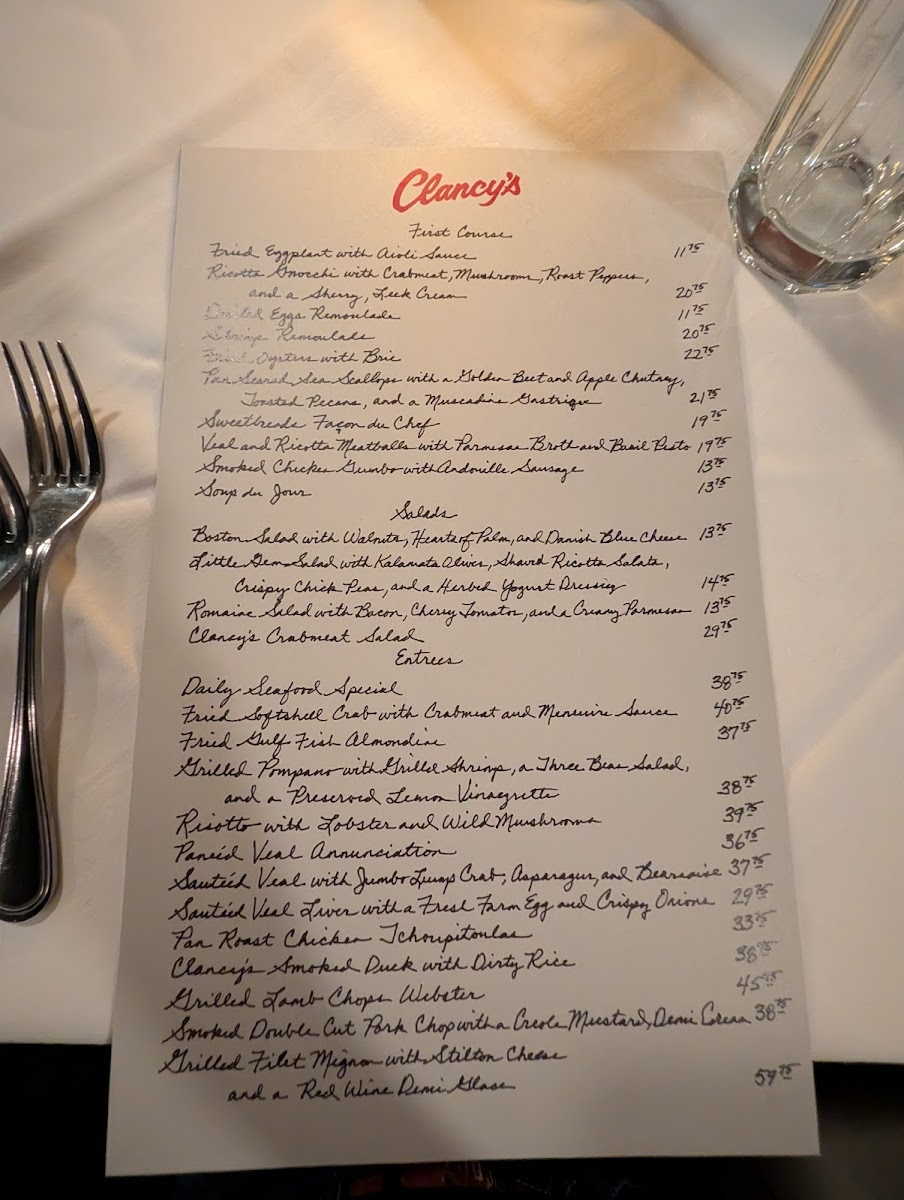 Clancy's
First Course
Fried Eggplant with Aioli Sauce 11 75
Ricotta Gnocchi with Crabmeat, Mushrooms, Roast Peppers,
and a Sherry, Leek Cream 20 75
Eggs Remoulade 11 75
Shrimp Remoulade 20 75
Fried Oysters with Brie 22 75
Pan Seared Sea Scallops with a Golden Beet and Apple Chutney,
Toasted Pecans, and a Muscadine Gastrique 21 75
Sweetbreads Façon du Chef 19 75
Veal and Ricotta Meatballs with Parmesan Broth and Basil Pesto 19 75
Smoked Chicken Gumbo with Andouille Sausage 13 75
Soup du Jour 13 75
Salads
Boston Salad with Walnuts, Hearts of Palm, and Danish Blue Cheese 13 75
Little Gem Salad with Kalamata Olives, Shaved Ricotta Salata,
Crispy Chick Peas, and a Herbed Yogurt Dressing 14 75
Romaine Salad with Bacon, Cherry Tomatoes, and a Creamy Parmesan 13 75
Clancy's Crabmeat Salad 29 75
Entrees
Daily Seafood Special 38 75
Fried Softshell Crab with Crabmeat and Meneuire Sauce 40 75
Fried Gulf Fish Almondine 37 75
Grilled Pompano with Grilled Shrimp, a Three Bean Salad,
and a Preserved Lemon Vinaigrette 38 75
Risotto with Lobster and Wild Mushrooms 39 75
Paneéd Veal Annunciation 36 75
Sautéed Veal with Jumbo Lump Crab, Asparagus, and Bearnaise 37 75
Sautéed Veal Liver with a Fresh Farm Egg and Crispy Onions 29 75
Pan Roast Chicken Tchoupitoulas 33 75
Clancy's Smoked Duck with Dirty Rice 38 75
Grilled Lamb Chops Webster 45 75
Smoked Double Cut Pork Chop with a Creole Mustard, Demi Cream 38 75
Grilled Filet Mignon with Stilton Cheese
and a Red Wine Demi Glace 59 75